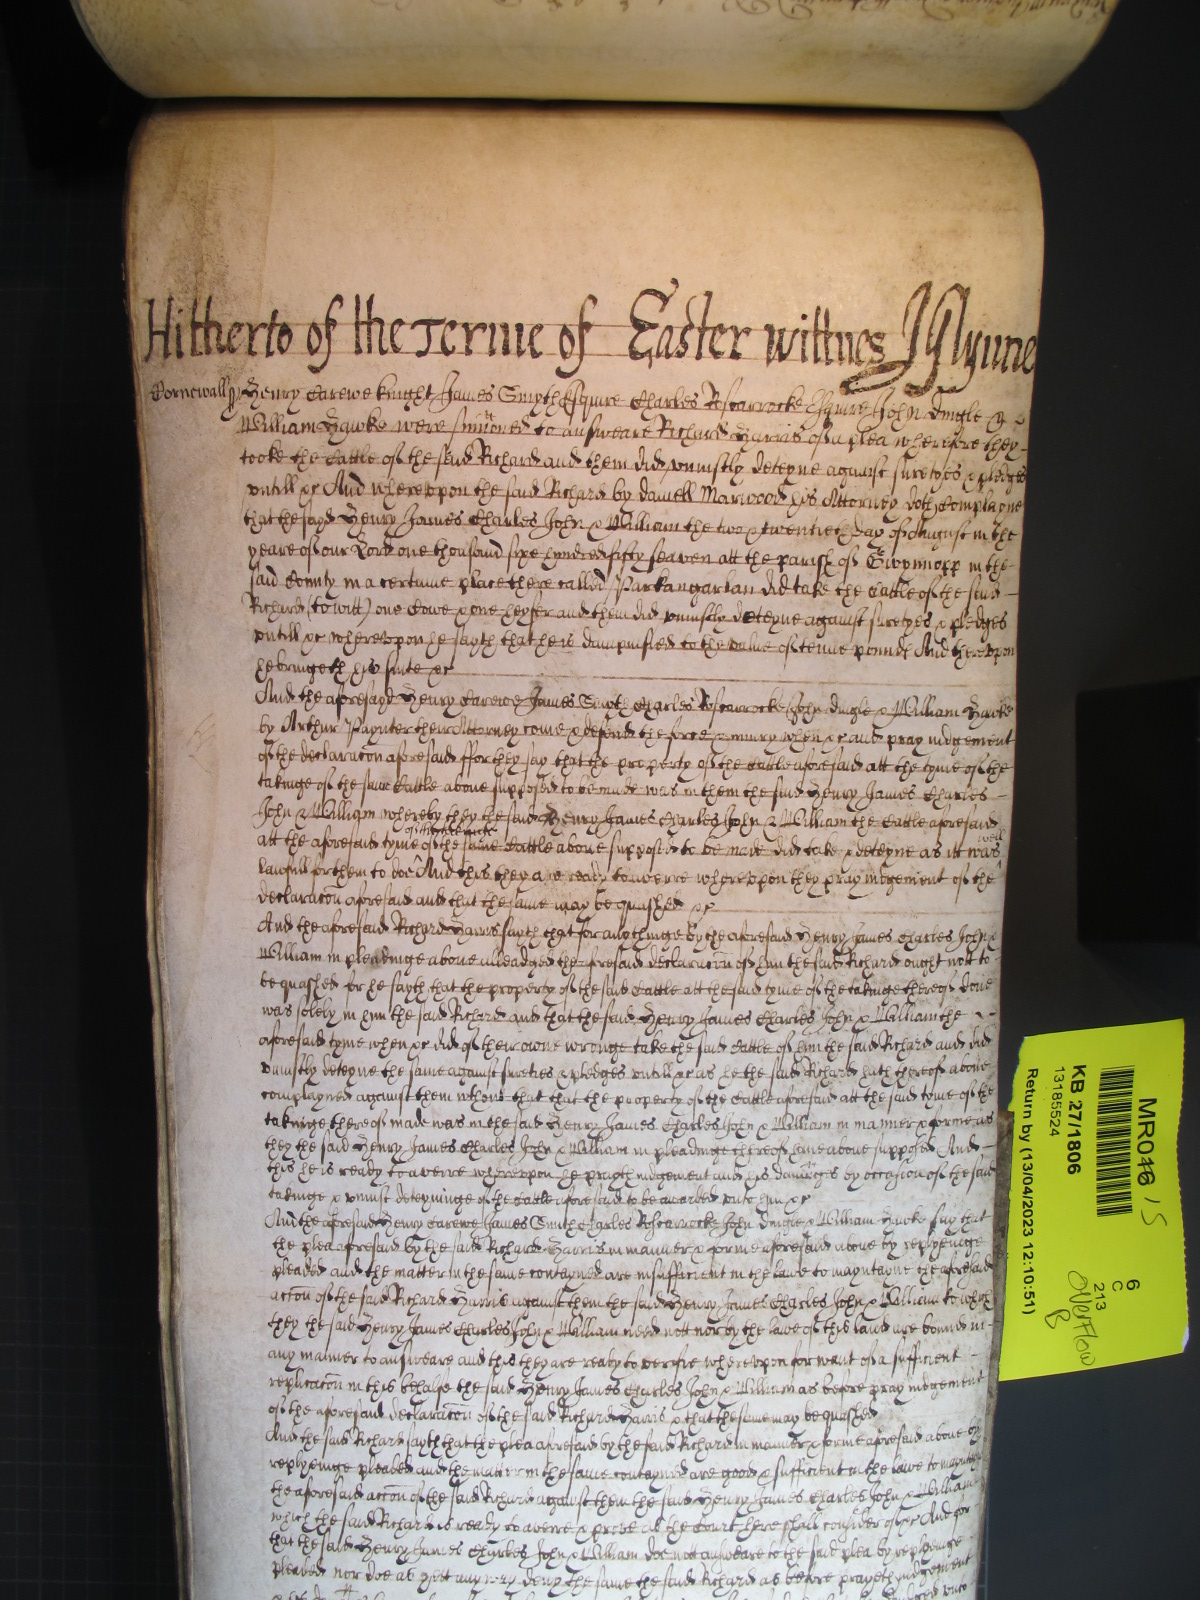 Hitherto of the Terme of Easter wittnes JGlynne
Cornewall Henry Carewe knight James Smyth Esquire Charles Roscarrocke Esquire John Dingle &
William Hawke were summoned to answeare Richard Harris of a plea wherefore they
tooke the Cattle of the said Richard and them did uniustly deteyne against suretyes & pledges
untill &c And whereupon the said Richard by Daniell Marwood his Attorney doth Complayne
that the sayd Henry James Charles John & William the two & twentieth day of August in the
yeare of our Lord one thousand sixe hundred fifty seaven att the parish of Gwynnopp in the
said County in a certaine place there called Parkangarlan did take the Cattle of the said
Richard (to witt) one Cowe & one heyfer and them did uniustly deteyne against suretyes & pledges
untill &c whereupon he sayth that he is dampnified to the value of tenne pounds And thereupon
he bringeth his suite &c
And the aforesayd Henry Carewe James Smyth Charles Roscarrocke John Dingle & William Hawke
by Arthur Paynter their Attorney come & defend the force & iniury when &c and pray iudgement
of the declaracon aforesaid ffor they say that the property of the Cattle aforesaid att the tyme of the
takinge of the same Cattle above supposed to be made was in them the said Henry James Charles
John & William whereby they the said Henry James Charles John & William the Cattle aforesaid
att the aforesaid tyme of the takeinge of the same Cattle above supposed to be made did take & deteyne as itt was well
lawfull for them to doe And this they are ready to averre whereupon they pray iudgement of the
declaracon aforesaid and that the same may be quashed &c
And the aforesaid Richard Harris sayth that for any thinge by the aforesaid Henry James Charles John &
William in pleadinge above alleadged the aforesaid declaracon of him the said Richard ought nott to
be quashed for he sayth that the property of the said Cattle att the said tyme of the takinge thereof done
was solely in him the said Richard and that the said Henry James Charles John & William the
aforesaid tyme when &c did of their owne wronge take the said Cattle of him the said Richard and did
uniustly deteyne the same against sureties & pledges untill &c as he the said Richard hath thereof above
complayned against them without that that the property of the Cattle aforesaid att the said tyme of the
takinge thereof made was in the said Henry James Charles John & William in manner & forme as
they the said Henry James Charles John & William in pleadinge thereof have above supposed And
this he is ready to averre whereupon he prayth iudgement and his damages by occasion of the said
takinge & uniust deteyninge of the Cattle aforesaid to be awarded unto him &c
And the aforesaid Henry Carewe James Smith Charles Roscarrocke John Dingle & William Hawke say that
the plea aforesaid by the said Richard Harris in manner & forme aforesaid above by replyeinge
pleaded and the matter in the same conteyned are insufficient in the lawe to mayntayne the aforesaid
accon of the said Richard Harris against them the said Henry James Charles John & William to which
they the said Henry James Charles John & William need nott nor by the lawe of this land are bound in
any manner to answeare and this they are ready to verifie whereupon for want of a sufficient
replicacon in this behalfe the said Henry James Charles John & William as before pray iudgement
of the aforesaid declaracon of the said Richard Harris & that the same may be quashed
And the said Richard sayth that the plea aforesaid by the said Richard in manner & forme aforesaid above by
replyeinge pleaded and the matter in the same conteyned are good & sufficient in the lawe to mayntayne
the aforesaid accon of the said Richard against them the said Henry James Charles John & William
which the said Richard is ready to averre & prove as the Court here shall consider of &c And for
that the said Henry James Charles John & William doe nott answeare to the said plea by replyeinge
pleaded nor doe as yett any way deny the same the said Richard as before prayeth iudgement
MR016 / S
KB 27/1806
13185524
Return by (13/04/2023 12:10:51)
6
C
213
Overflow
B